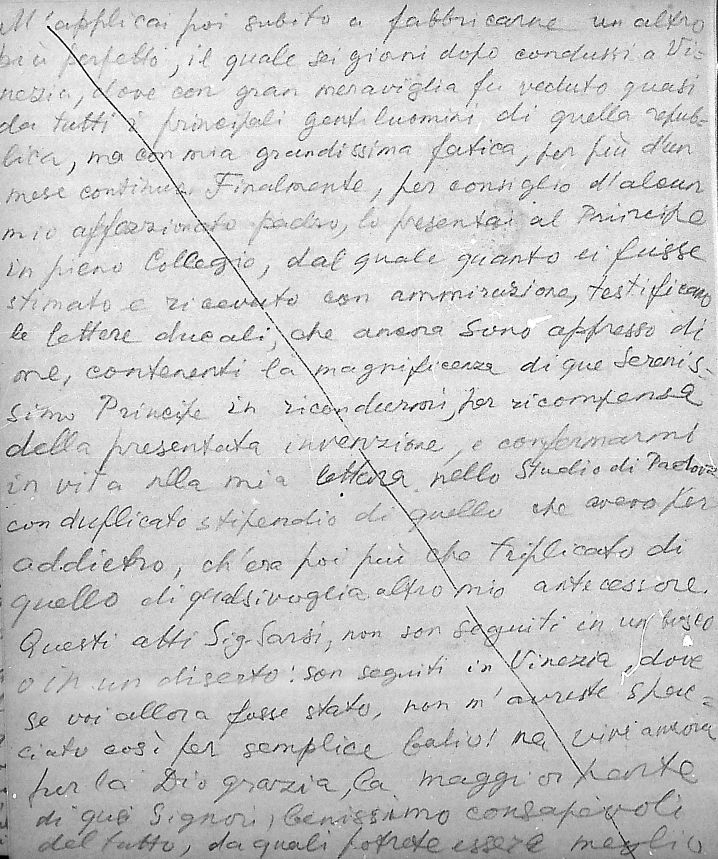 M'applicai poi subito a fabbricarne un altro
più perfetto, il quale sei giorni dopo condussi a Vi-
nezia, dove con gran meraviglia fu veduto quasi
da tutti i principali gentiluomini di quella repub-
lica, ma con mia grandissima fatica, per più d'un
mese continuo. Finalmente, per consiglio d'alcun
mio affezzionato padro, lo presentai al Principe
in pieno Collegio, dal quale quanto ei fusse
stimato e ricevuto con ammirazione, testificano
le lettere ducali, che ancora sono appresso di
me, contenenti la magnificenza di que Serenis-
simo Principe in ricondurmi, per ricompensa
della presentata invenzione, e confermarmi
in vita nlla mia lettura nello Studio di Padova
con duplicato stipendio di quello che avevo per
addietro, ch'era poi più che triplicato di
quello di qualsivoglia altro mio antecessore.
Questi atti Sig. Sarsi, non son seguiti in un bosco
o in un diserto: son seguiti in Vinezia, dove
se voi allora fosse stato, non m'avreste spac-
ciato così per semplice balio! ma vive ancora
per la Dio grazia, la maggior parte
di quei Signori, benissimo consapevoli
del tutto, da quali potrete essere meglio